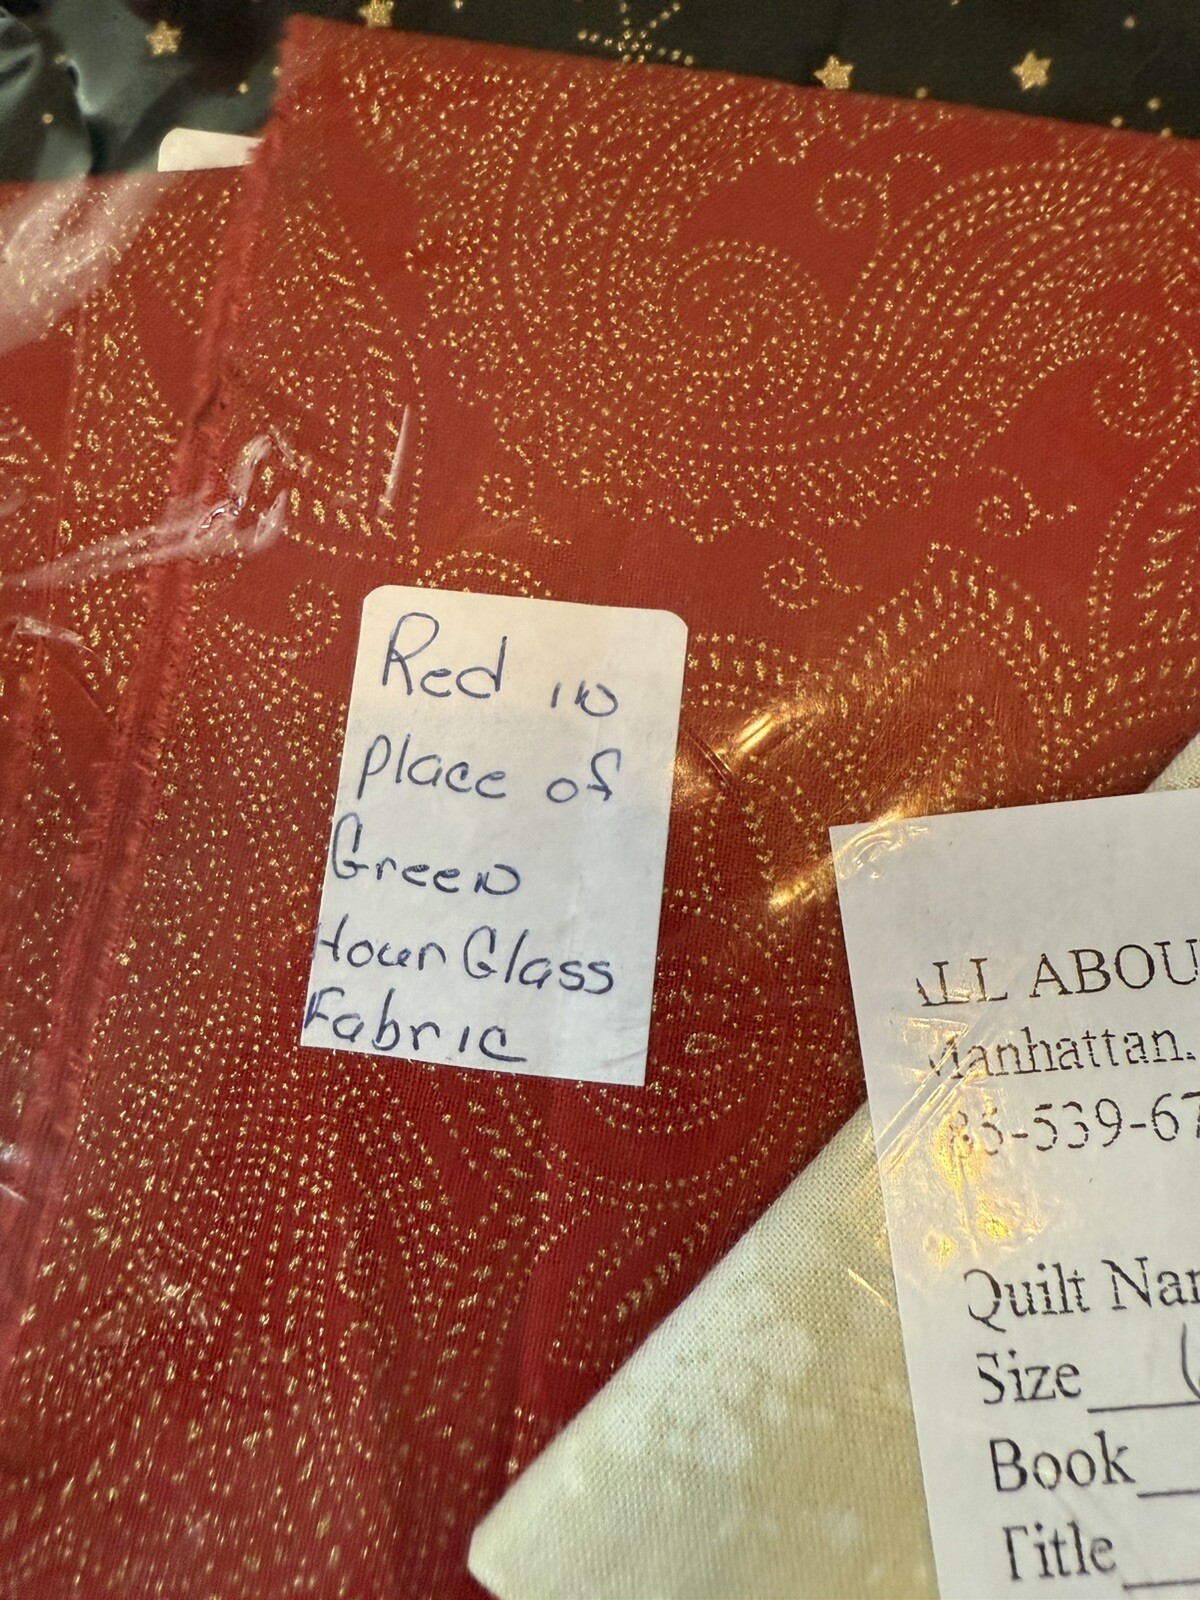 Red in
place of
Green
Hour Glass
Fabric
ALL ABOU
Manhattan.
85-539-67
Quilt Nam
Size
Book
Title